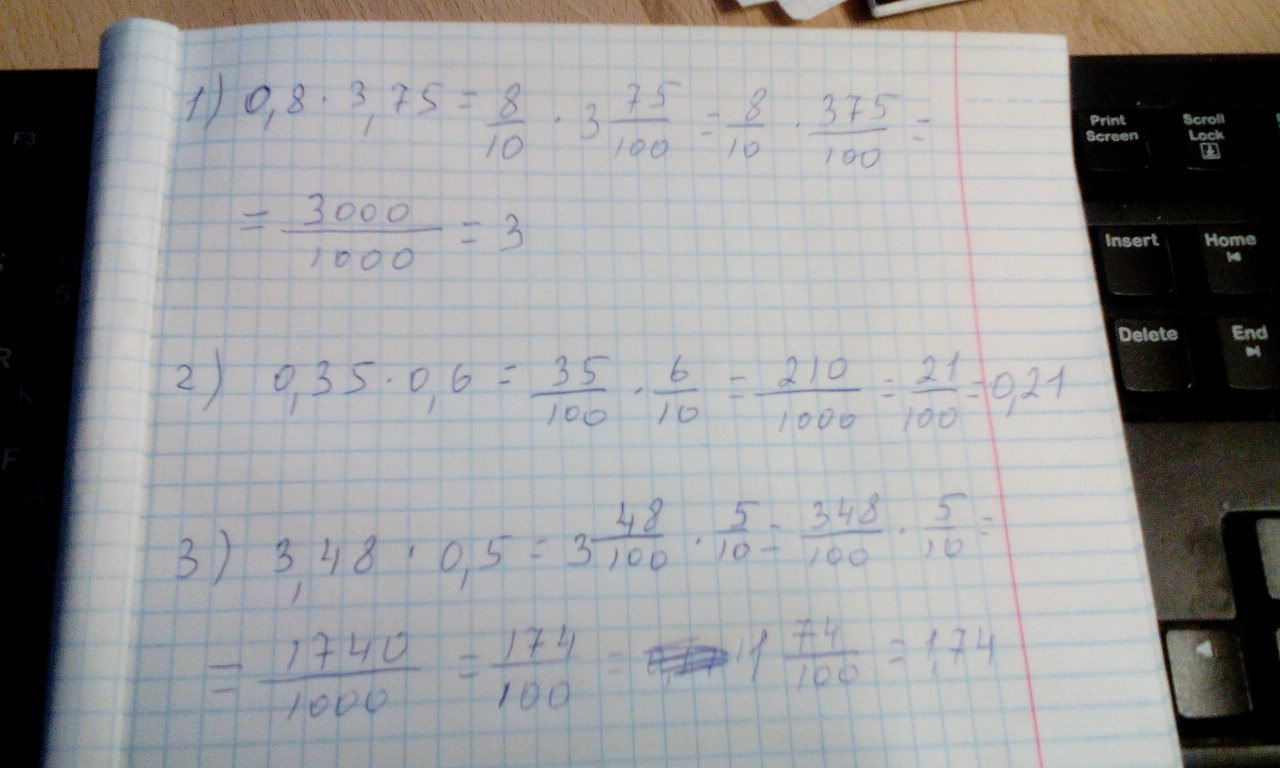 1) 0,8 · 3,75 = 8/10 · 3 75/100 = 8/10 · 375/100 =
= 3000/1000 = 3
2) 0,35 · 0,6 = 35/100 · 6/10 = 210/1000 = 21/100 = 0,21
3) 3,48 · 0,5 = 3 48/100 · 5/10 = 348/100 · 5/10 =
= 1740/1000 = 174/100 = 1 74/100 = 1,74
Print Screen
Scroll Lock
Insert
Home
Delete
End
F3